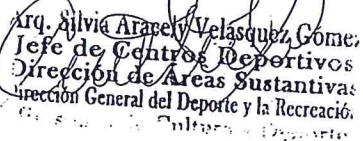 Arq. Silvia Aracely Velasquez Gómez
Jefe de Centros Deportivos
Dirección de Areas Sustantivas
Dirección General del Deporte y la Recreación
Cultura y Deportes